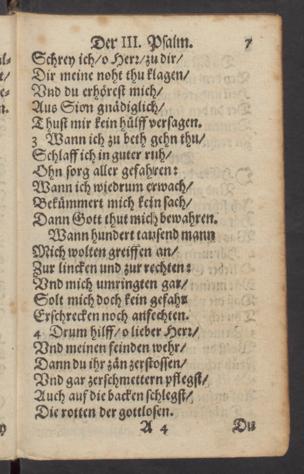 Der III. Psalm. 7
Schrey ich/ o Herr/ zu dir/
Dir meine noht thu klagen/
Vnd du erhörest mich/
Aus Sion gnädiglich/
Thust mir kein hülff versagen.
3 Wann ich zu beth gehn thu/
Schlaff ich in guter ruh/
Ohn sorg aller gefahren:
Wann ich wiedrum erwach/
Bekümmert mich kein sach/
Dann Gott thut mich bewahren.
Wann hundert tausend mann
Mich wolten greiffen an/
Zur lincken und zur rechten:
Vnd mich umringten gar/
Solt mich doch kein gefahr
Erschrecken noch anfechten.
4 Drum hilff/ o lieber Herr/
Vnd meinen feinden wehr/
Dann du ihr zän zerstossen/
Vnd gar zerschmettern pflegst/
Auch auf die backen schlegst/
Die rotten der gottlosen.
A 4 Du